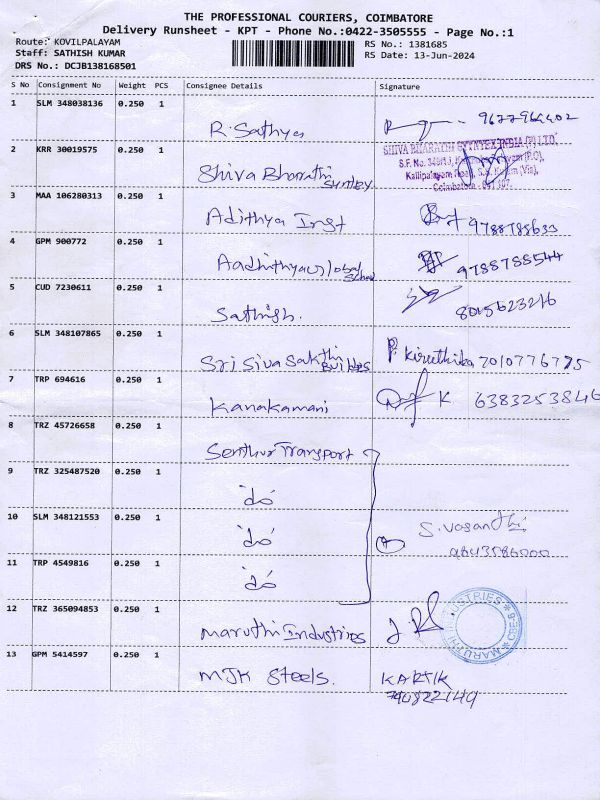 THE PROFESSIONAL COURIERS, COIMBATORE
Delivery Runsheet - KPT - Phone No.:0422-3505555 - Page No.:1
Route: KOVILPALAYAM
Staff: SATHISH KUMAR
DRS No.: DCJB138168501
RS No.: 1381685
RS Date: 13-Jun-2024
S No Consignment No Weight PCS Consignee Details Signature
1 SLM 348038136 0.250 1
R. Sathya
2 KRR 30019575 0.250 1
Shiva Bharathi
SHIVA BHARATHI INDIA (P) LTD.
S.F. No.
Coimbatore
3 MAA 106280313 0.250 1
Adithya Inst 9788788633
4 GPM 900772 0.250 1
Aadhithya Global School 9788788544
5 CUD 7230611 0.250 1
Sathish. 8015623216
6 SLM 348107865 0.250 1
Sri Siva Sakthi Builders P. Kiruthika 7010776775
7 TRP 694616 0.250 1
Kanakamani K 6383253846
8 TRZ 45726658 0.250 1
Senthur Transport
9 TRZ 325487520 0.250 1
"do"
10 SLM 348121553 0.250 1
"do" S. Vasanthi
9843586000
11 TRP 4549816 0.250 1
"do"
12 TRZ 365094853 0.250 1
Maruthi Industries
MARUTHI INDUSTRIES * CBE-6 *
13 GPM 5414597 0.250 1
MJK Steels. KARTIK